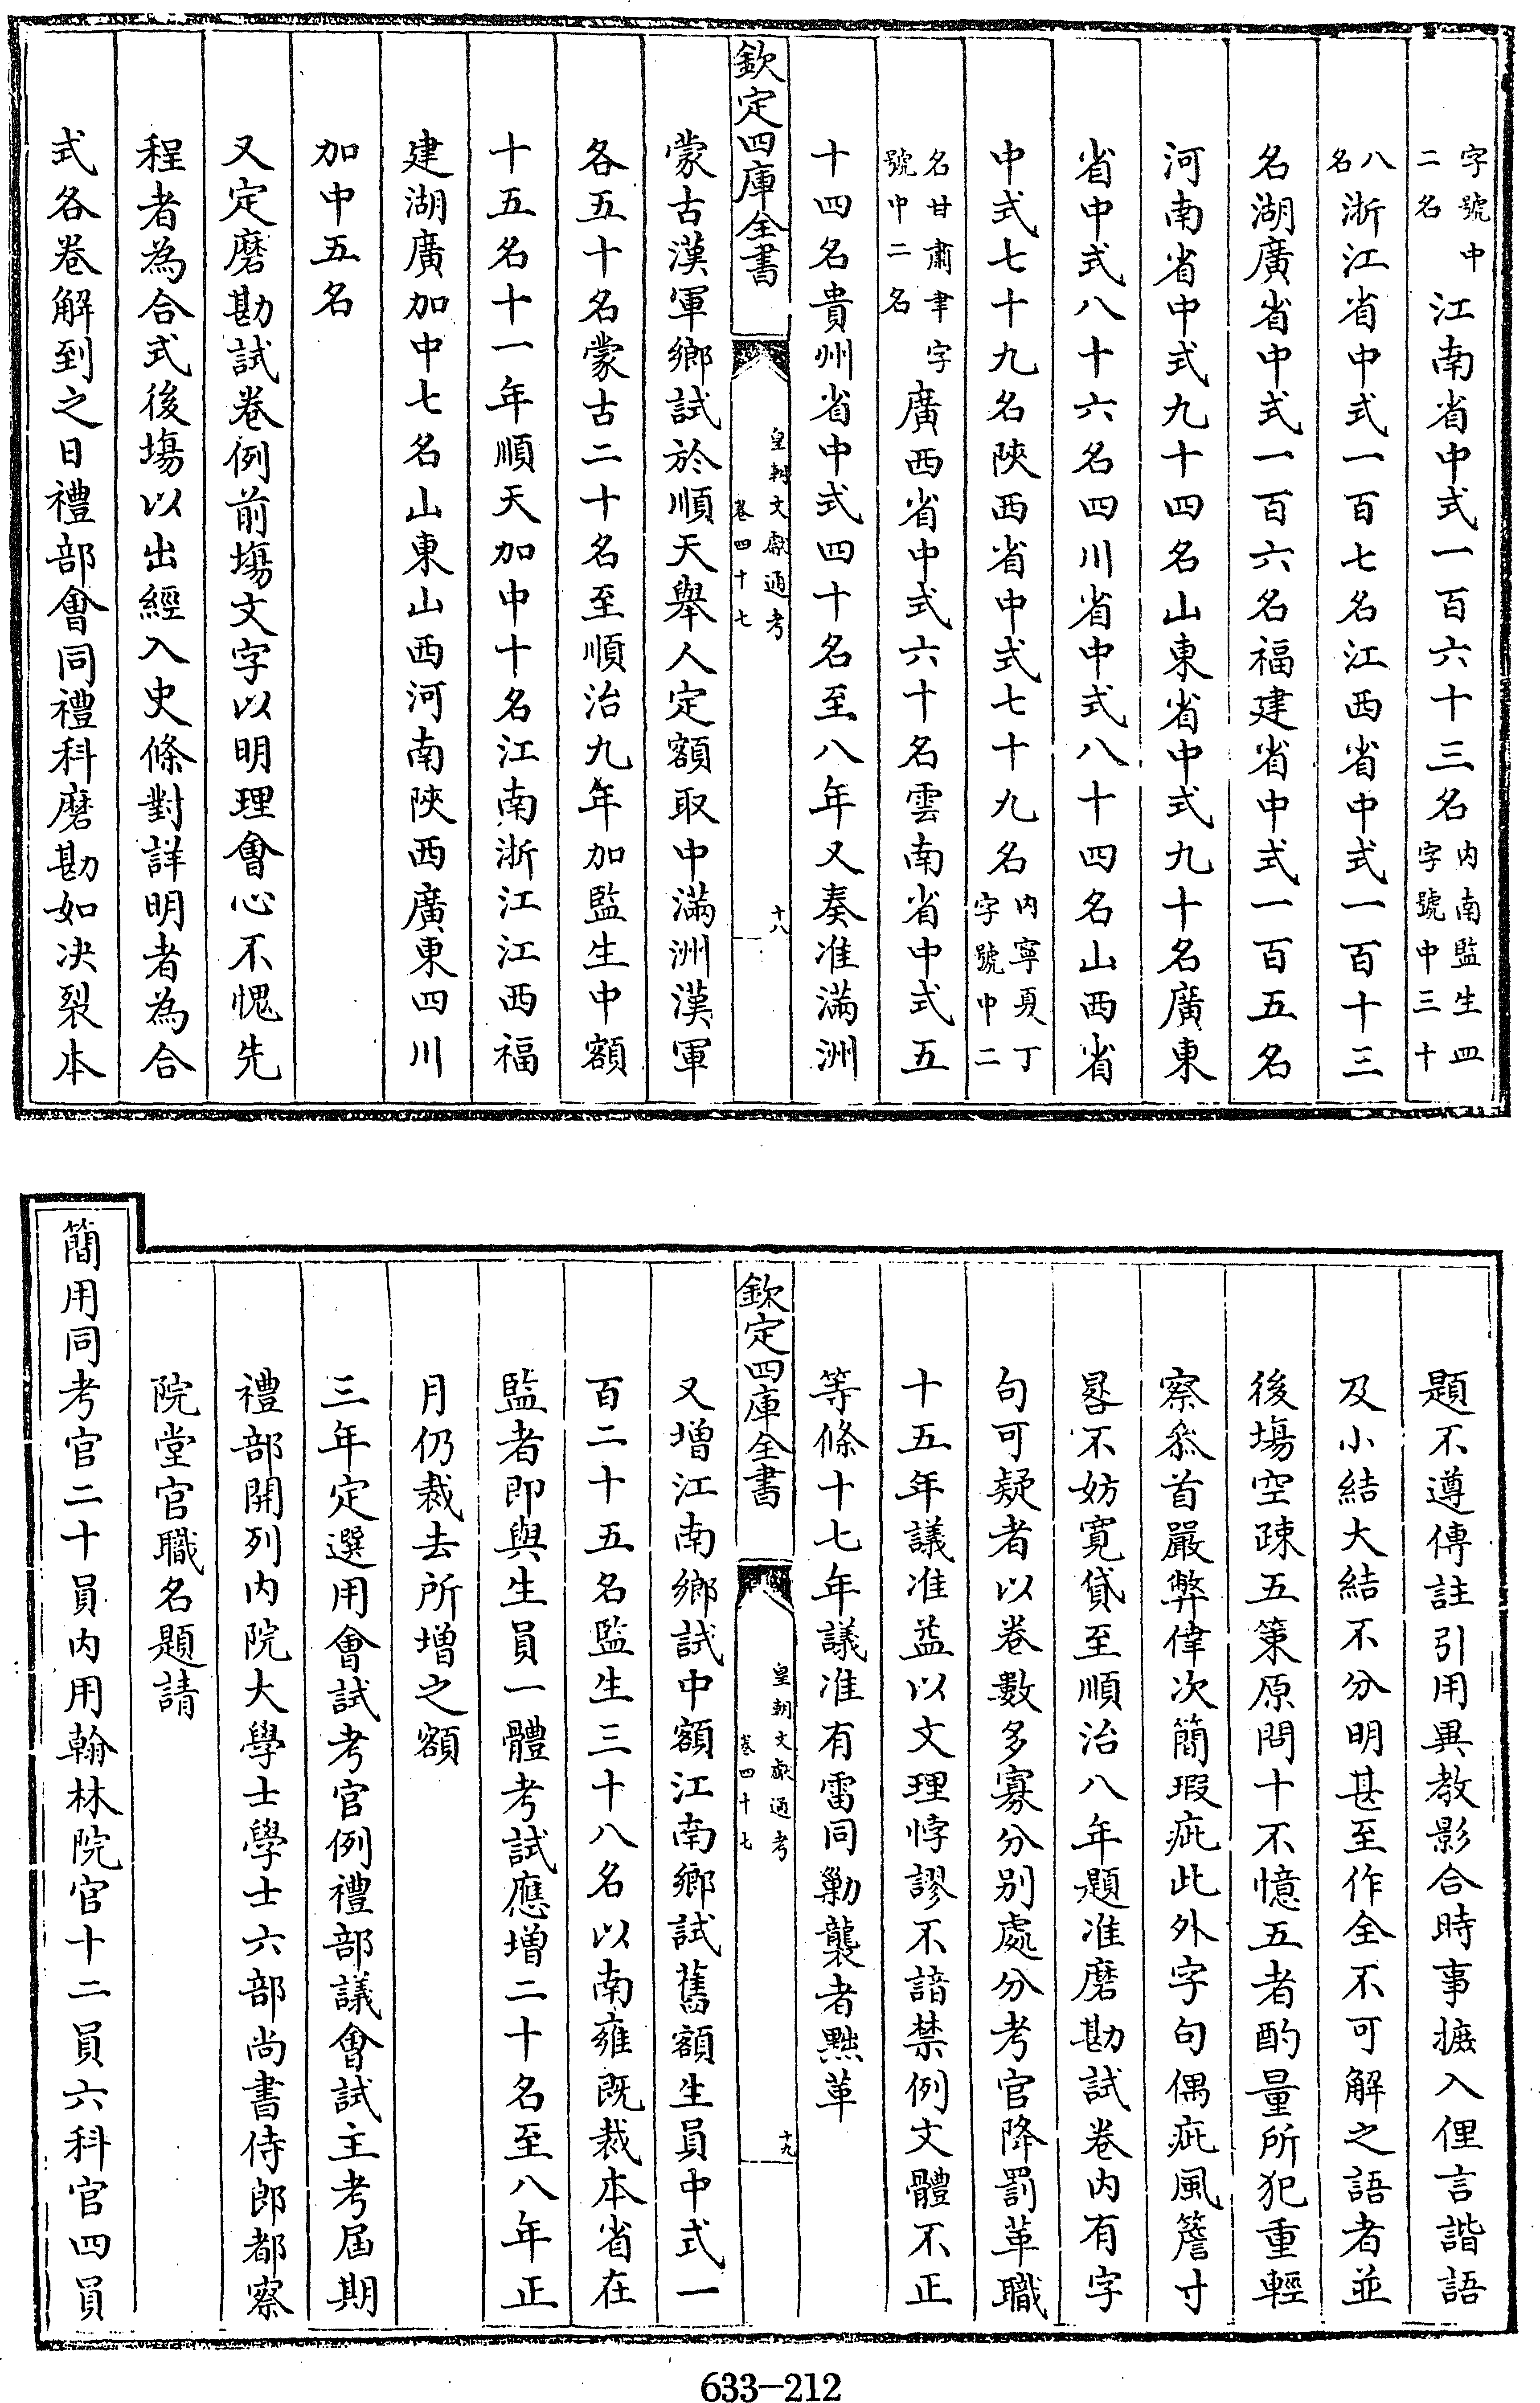 字號中
二名
江南省中式一百六十三名
内南監生皿
字號中三十
八
名
浙江省中式一百七名江西省中式一百十三
名湖廣省中式一百六名福建省中式一百五名
河南省中式九十四名山東省中式九十名廣東
省中式八十六名四川省中式八十四名山西省
中式七十九名陝西省中式七十九名
内寧夏丁
字號中二
名甘肅聿字
號中二名
廣西省中式六十名雲南省中式五
十四名貴州省中式四十名至八年又奏准滿洲
欽定四庫全書
皇朝文獻通考
卷四十七
十八
蒙古漢軍鄉試於順天舉人定額取中滿洲漢軍
各五十名蒙古二十名至順治九年加監生中額
十五名十一年順天加中十名江南浙江江西福
建湖廣加中七名山東山西河南陝西廣東四川
加中五名
又定磨勘試卷例前塲文字以明理會心不愧先
程者為合式後塲以出經入史條對詳明者為合
式各卷解到之日禮部會同禮科磨勘如决裂本
題不遵傳註引用異教影合時事摭入俚言諧語
及小結大結不分明甚至作全不可解之語者並
後塲空疎五策原問十不憶五者酌量所犯重輕
察叅首嚴弊倖次簡瑕疵此外字句偶疵風簷寸
晷不妨寛貸至順治八年題准磨勘試卷内有字
句可疑者以卷數多寡分别處分考官降罰革職
十五年議准益以文理悖謬不諳禁例文體不正
等條十七年議准有雷同勦襲者黜革
欽定四庫全書
皇朝文獻通考
卷四十七
十九
又增江南鄉試中額江南鄉試舊額生員中式一
百二十五名監生三十八名以南雍既裁本省在
監者即與生員一體考試應增二十名至八年正
月仍裁去所增之額
三年定選用會試考官例禮部議會試主考屆期
禮部開列内院大學士學士六部尚書侍郎都察
院堂官職名題請
簡用同考官二十員内用翰林院官十二員六科官四員
633-212